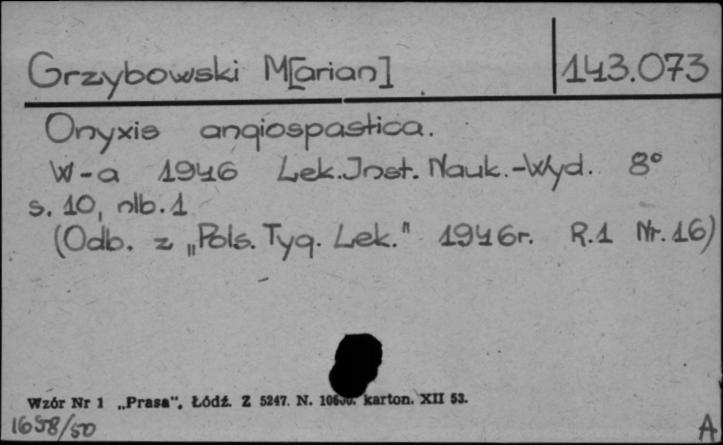 Grzybowski M[arian]
143.073
Onyxis angiospastica.
W-a 1946 Lek.Inst. Nauk.-Wyd. 8°
s. 10, nlb. 1
(Odb. z „Pols. Tyg. Lek." 1946r. R.1 Nr. 16)
Wzór Nr 1 „Prasa", Łódź. Z 5247. N. karton. XII 53.
1658/50
A